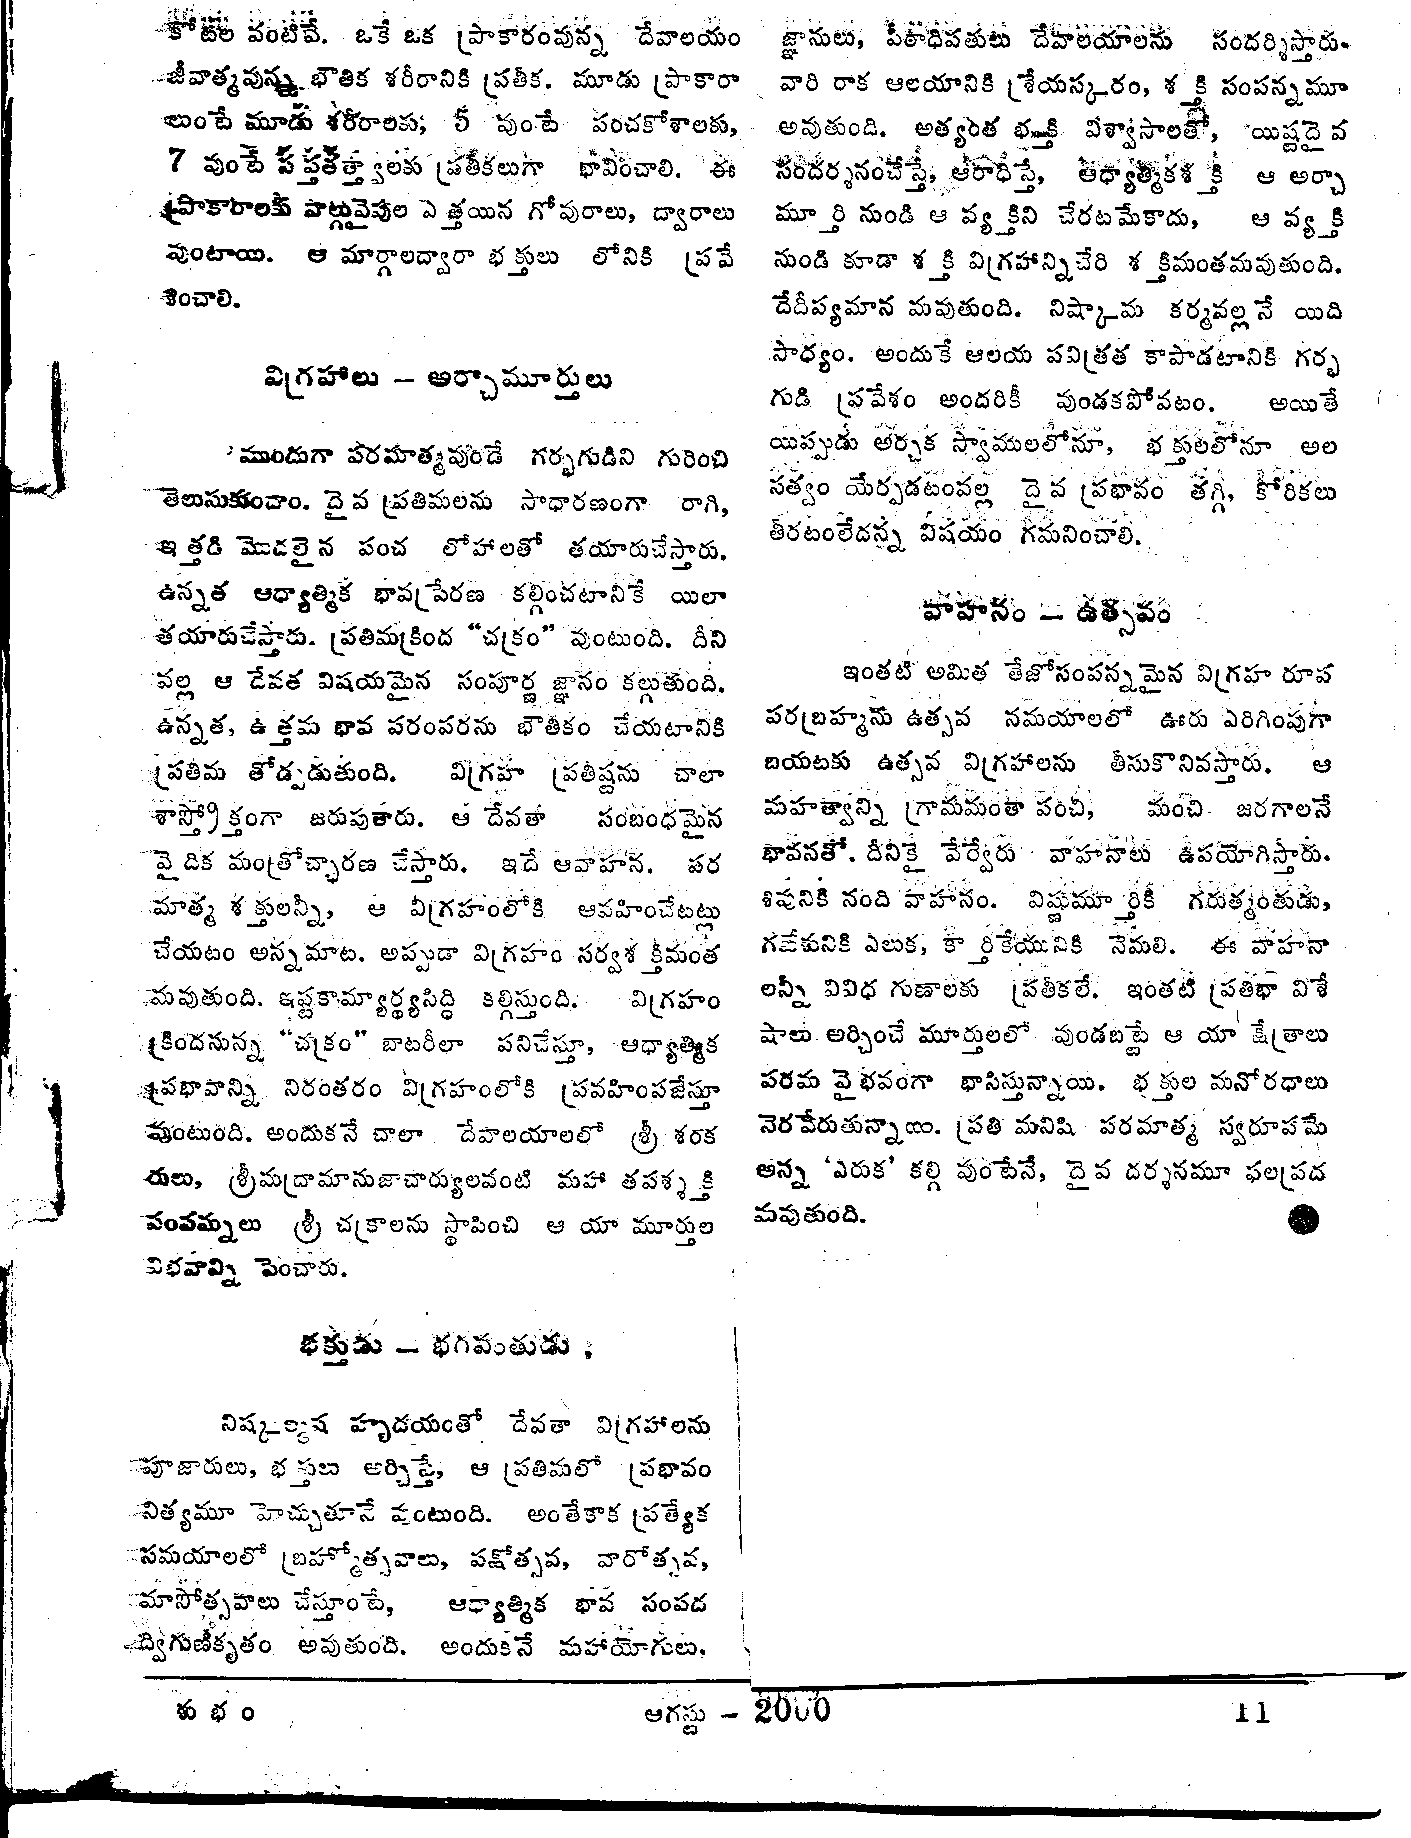 కోటల వంటివే. ఒకే ఒక ప్రాకారంవున్న దేవాలయం
జీవాత్మవున్న భౌతిక శరీరానికి ప్రతీక. మూడు ప్రాకారా
లుంటే మూడు శరీరాలకు; 5 వుంటే పంచకోశాలకు,
7 వుంటే సప్తతత్త్వాలకు ప్రతీకలుగా భావించాలి. ఈ
ప్రాకారాలకు నాల్గువైపుల ఎత్తయిన గోపురాలు, ద్వారాలు
వుంటాయి. ఆ మార్గాలద్వారా భక్తులు లోనికి ప్రవే
శించాలి.
విగ్రహాలు – అర్చామూర్తులు
ముందుగా పరమాత్మవుండే గర్భగుడిని గురించి
తెలుసుకుందాం. దైవ ప్రతిమలను సాధారణంగా రాగి,
ఇత్తడి మొదలైన పంచ లోహాలతో తయారుచేస్తారు.
ఉన్నత ఆధ్యాత్మిక భావప్రేరణ కల్గించటానికే యిలా
తయారుచేస్తారు. ప్రతిమక్రింద “చక్రం” వుంటుంది. దీని
వల్ల ఆ దేవత విషయమైన సంపూర్ణ జ్ఞానం కల్గుతుంది.
ఉన్నత, ఉత్తమ భావ పరంపరను భౌతికం చేయటానికి
ప్రతిమ తోడ్పడుతుంది. విగ్రహ ప్రతిష్టను చాలా
శాస్త్రోక్తంగా జరుపుతారు. ఆ దేవతా సంబంధమైన
వైదిక మంత్రోచ్ఛారణ చేస్తారు. ఇదే ఆవాహన. పర
మాత్మ శక్తులన్నీ, ఆ విగ్రహంలోకి ఆవహించేటట్లు
చేయటం అన్నమాట. అప్పుడా విగ్రహం సర్వశక్తిమంత
మవుతుంది. ఇష్టకామ్యార్థ్యసిద్ధి కల్గిస్తుంది. విగ్రహం
క్రిందనున్న “చక్రం” బాటరీలా పనిచేస్తూ, ఆధ్యాత్మిక
ప్రభావాన్ని నిరంతరం విగ్రహంలోకి ప్రవహింపజేస్తూ
వుంటుంది. అందుకనే చాలా దేవాలయాలలో శ్రీ శంక
రులు, శ్రీమద్రామానుజాచార్యులవంటి మహా తపశ్శక్తి
సంపన్నులు శ్రీ చక్రాలను స్థాపించి ఆ యా మూర్తుల
విభవాన్ని పెంచారు.
భక్తుడు – భగవంతుడు ;
నిష్కల్మష హృదయంతో దేవతా విగ్రహాలను
పూజారులు, భక్తులు అర్చిస్తే, ఆ ప్రతిమలో ప్రభావం
నిత్యమూ హెచ్చుతూనే వుంటుంది. అంతేకాక ప్రత్యేక
సమయాలలో బ్రహ్మోత్సవాలు, పక్షోత్సవ, వారోత్సవ,
మాసోత్సవాలు చేస్తూంటే, ఆధ్యాత్మిక భావ సంపద
ద్విగుణీకృతం అవుతుంది. అందుకనే మహాయోగులు,
జ్ఞానులు, పీఠాధిపతులు దేవాలయాలను సందర్శిస్తారు.
వారి రాక ఆలయానికి శ్రేయస్కరం, శక్తి సంపన్నమూ
అవుతుంది. అత్యంత భక్తి విశ్వాసాలతో, యిష్టదైవ
సందర్శనంచేస్తే, ఆరాధిస్తే, ఆధ్యాత్మికశక్తి ఆ అర్చా
మూర్తి నుండి ఆ వ్యక్తిని చేరటమేకాదు, ఆ వ్యక్తి
నుండి కూడా శక్తి విగ్రహాన్నిచేరి శక్తిమంతమవుతుంది.
దేదీప్యమాన మవుతుంది. నిష్కామ కర్మవల్లనే యిది
సాధ్యం. అందుకే ఆలయ పవిత్రత కాపాడటానికి గర్భ
గుడి ప్రవేశం అందరికీ వుండకపోవటం. అయితే
యిప్పుడు అర్చక స్వాములలోనూ, భక్తులలోనూ అల
సత్వం యేర్పడటంవల్ల దైవ ప్రభావం తగ్గి, కోరికలు
తీరటంలేదన్న విషయం గమనించాలి.
వాహనం – ఉత్సవం
ఇంతటి అమిత తేజోసంపన్నమైన విగ్రహ రూప
పరబ్రహ్మను ఉత్సవ సమయాలలో ఊరు ఎరిగింపుగా
బయటకు ఉత్సవ విగ్రహాలను తీసుకొనివస్తారు. ఆ
మహత్వాన్ని గ్రామమంతా పంచి, మంచి జరగాలనే
భావనతో. దీనికై వేర్వేరు వాహనాలు ఉపయోగిస్తారు.
శివునికి నంది వాహనం. విష్ణుమూర్తికి గరుత్మంతుడు,
గణేశునికి ఎలుక, కార్తికేయునికి నెమలి. ఈ వాహనా
లన్నీ వివిధ గుణాలకు ప్రతీకలే. ఇంతటి ప్రతిభా విశే
షాలు అర్చించే మూర్తులలో వుండబట్టే ఆ యా క్షేత్రాలు
పరమ వైభవంగా భాసిస్తున్నాయి. భక్తుల మనోరధాలు
నెరవేరుతున్నాయి. ప్రతి మనిషి పరమాత్మ స్వరూపమే
అన్న ‘ఎరుక’ కల్గి వుంటేనే, దైవ దర్శనమూ ఫలప్రద
మవుతుంది.
శుభం ఆగస్టు – 2000 11